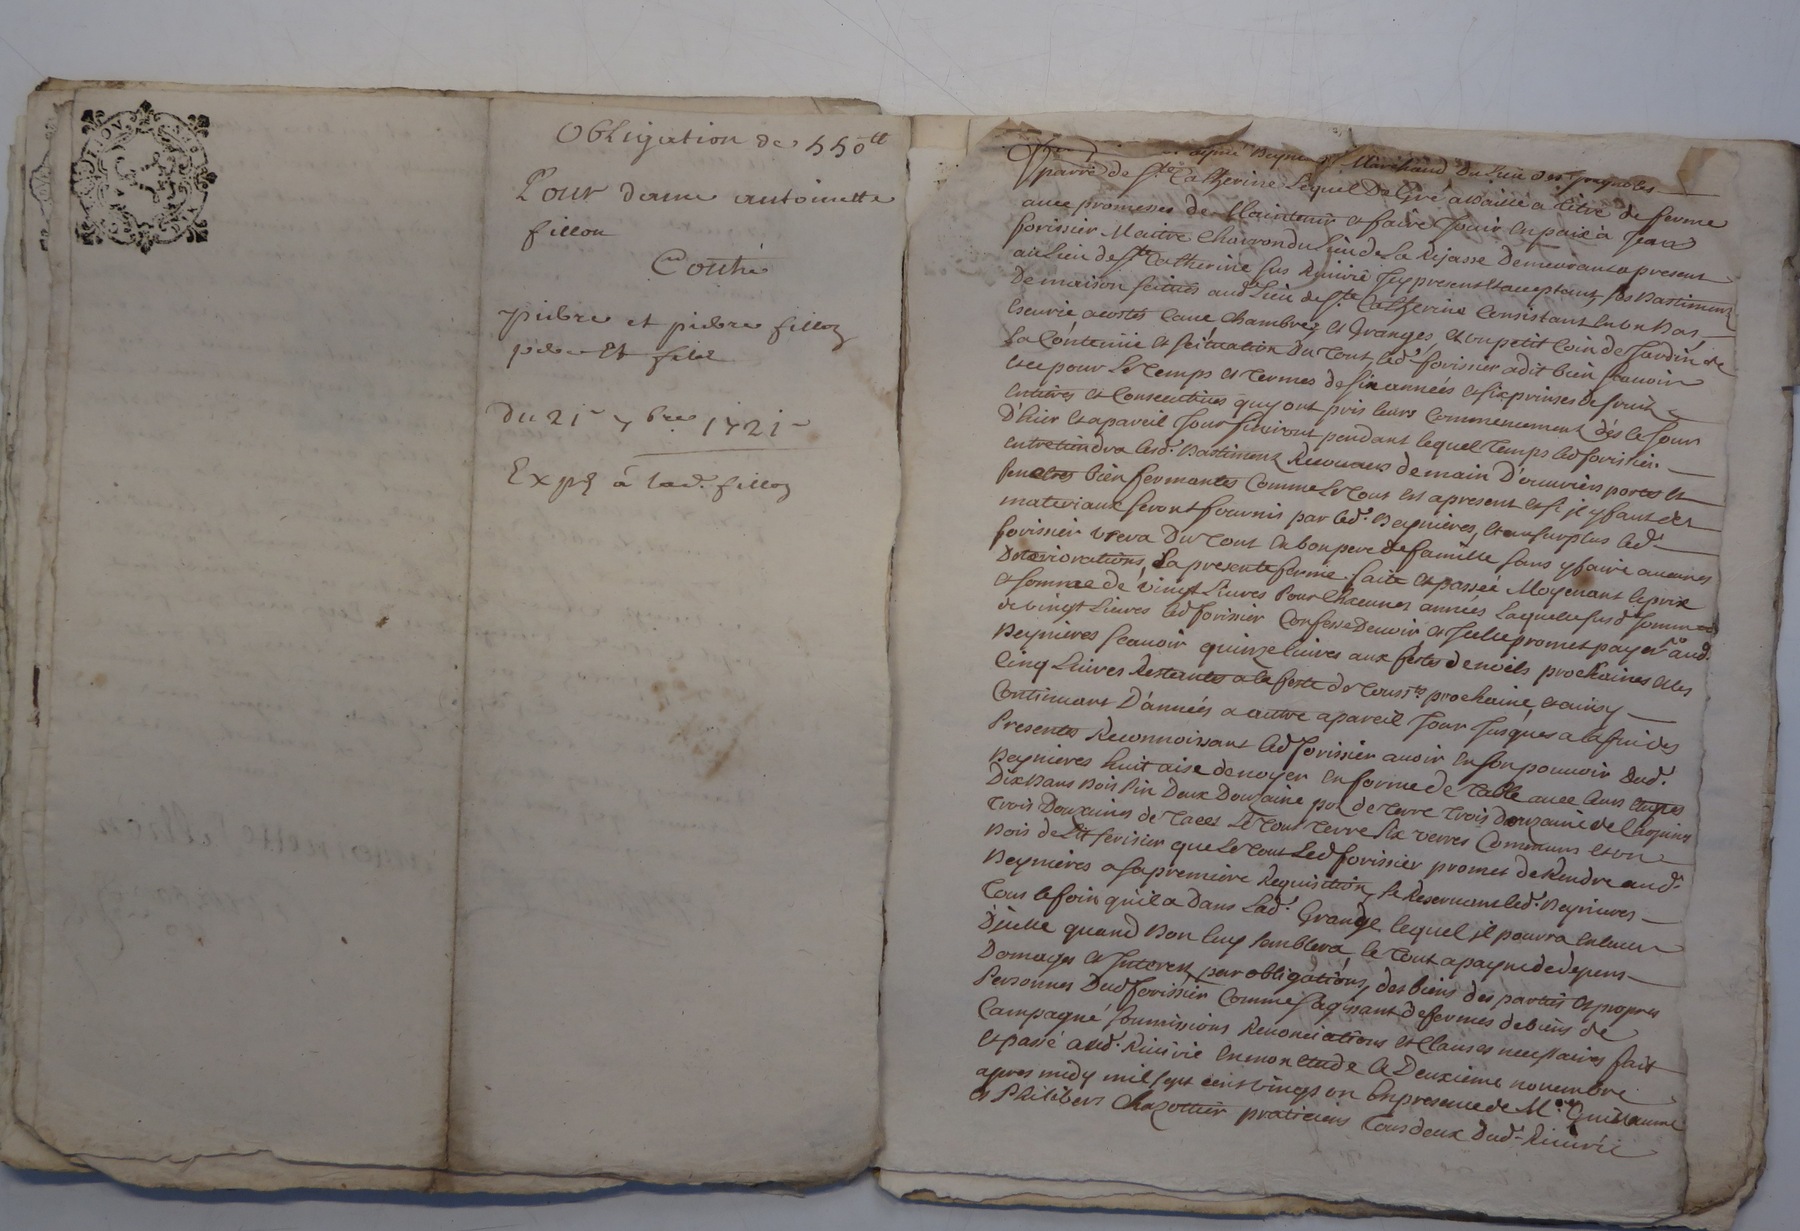 Obligation de 550ᵗᵗ
Pour dame antoinette
fillon
Contre
pierre et pierre fillon
pere Et fils
Du 21ᵉ 7bre 1721
Exp.e a lad. fillon
Marchand du Lieu des
parre de Ste Catherine Lequel De Gré a baillé a titre de ferme
avec promesses de Maintenir et faire Jouir en paix à Jean
forissier Maitre Charron du Lieu de La Rejasse Demeurant a present
au Lieu de Ste Catherine sus Riverie Icy present et acceptant, ses Bastimens
De maison scitués aud. Lieu de Ste Catherine Consistant en un Bas,
Escurie acostés Cave Chambres et Granges, et un petit Coin de Jardin de
La Contenüe et scituation Du tout led. forissier a dit bien scavoir
et ce pour Le temps et termes de six années et six prinses de fruits
entieres et Consecutives quy ont pris leurs Commencement dés le Jour
D'hier et a pareil Jour finiront pendant lequel temps led forissier
entretiendra lesd. Bastimens Recouverts de main D'ouvriers portes et
fenetres bien fermantes Comme Le tout est a present et si il y faut des
materiaux seront fournis par led. Beynieres, et au surplus led.
forissier usera Du tout en bon pere de famille sans y faire aucunes
Deteriorations, La presente ferme faite et passée Moyenant le prix
et somme de vingt Livres Pour Chacunes années Laquelle susd. somme
de vingt Livres led forissier Confesse Devoir et Icelle promet payer aud.
Beynieres scavoir quinze livres aux festes de noëls prochaines et les
Cinq Livres Restantes a la feste de Touss.ts prochaine, et ainsy
Continuant D'années a autre a pareil Jour Jusques a la fin des
Presentes Reconnoissant led forissier avoir en son pouvoir Dud.
Beynieres huit aise de noyer en forme de table avec leurs
Dix Bans Bois Pin Deux Douzaine pot de terre trois douzaine de
trois Douzaines de tacet Le tout terre six verres Communs et un
Bois de Lit serisier que Le tout Led forissier promet de Rendre aud.
Beynieres a sa premiere Requisition, se Reservant led. Beynieres
tous le foin qu'il a Dans Lad. Grange lequel il pourra enlever
D'jcelle quand Bon luy semblera, le tout a payne de depens
Domages et Interets par obligations, des biens des parties et propres
Personnes Dud forissier Comme s'agissant de fermes de biens de
Campagne, soumissions Renonciations et Clauses necessaires fait
et passé aud. Riverie en mon etude le Deuxieme novembre
apres midy mil sept cent vingt un En presence de Mre Guillaume
et Philibert Chazottier praticiens tous deux Dud. Riverie